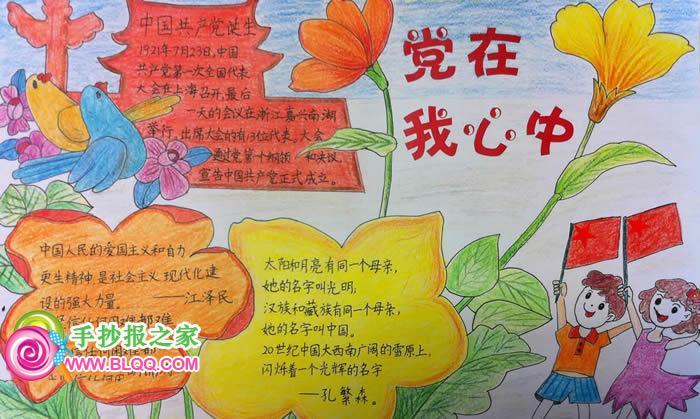 中国共产党诞生
1921年7月23日,中国
共产党第一次全国代表
大会在上海召开,最后
一天的会议在浙江嘉兴南湖
举行,出席大会的有13位代表。大会
通过党第个纲领和决议,
宣告中国共产党正式成立。
党在
我心中
中国人民的爱国主义和自力
更生精神,是社会主义现代化建
设的强大力量。
——江泽民
太阳和月亮有同一个母亲,
她的名字叫光明,
汉族和藏族有同一个母亲,
她的名字叫中国。
20世纪中国大西南广阔的雪原上,
闪烁着一个光辉的名字
——孔繁森。
手抄报之家
WWW.BLQQ.COM